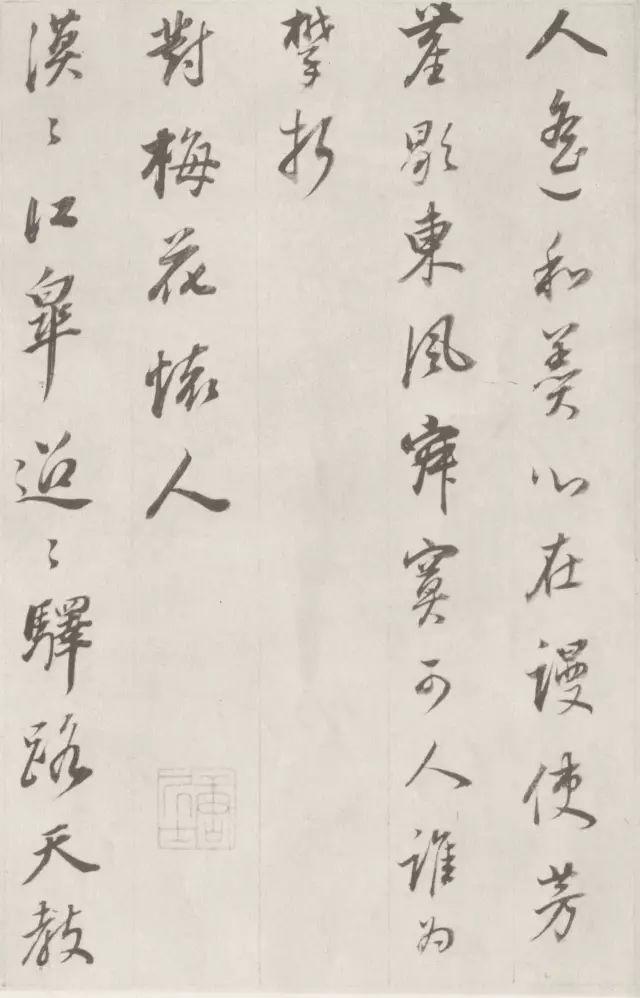 人遙和羹心在謾使芳
塵歇東風寂寞可人誰为
攀折
對梅花懷人
漠〻江皐迢〻驛路天教